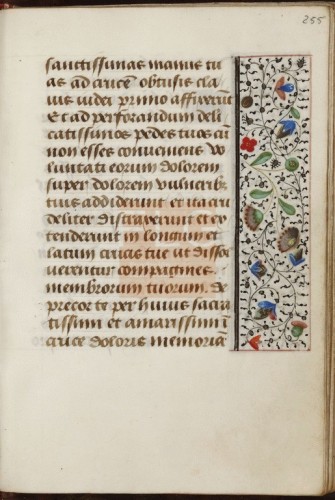 255
sanctissimas manus tu
as ad crucē obtusis cla
uis iudei primo affixerūt
Et ad perforandum deli
catissimos pedes tuos cū
non esses conueniens vo
luntati eorum dolorem
super dolorem vulnerib;
tuis addiderunt et ita cru
deliter distraxerunt et ex
tenderunt in longum et
latum crucis tue ut dissol
uerentur compagines
membrorum tuorum. de
precor te per huius sacra
tissimi et amarissimi ī
cruce doloris memoriā